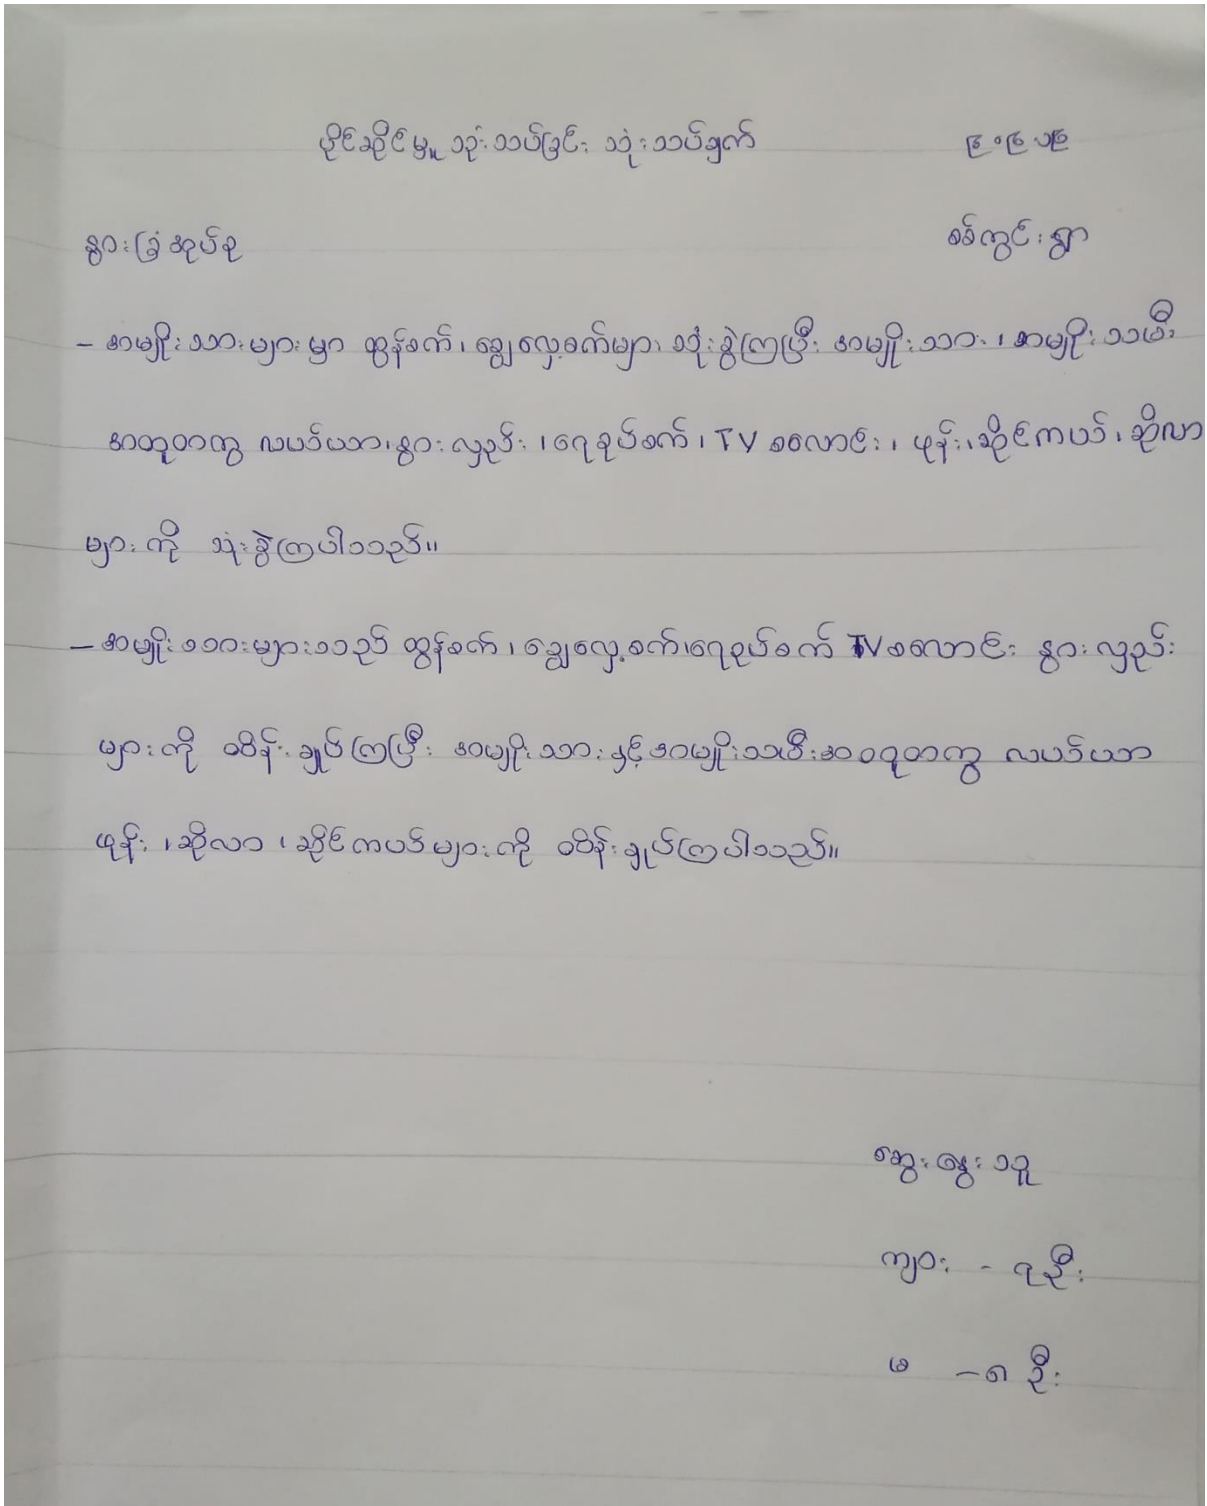 ပိုင်ဆိုင်မှု သုံးသပ်ခြင်း သုံးသပ်ချက်
နွားခြံအုပ်စု စစ်ကွင်းရွာ
- အမျိုးသားများမှာ ထွန်စက်၊ ချွေလှေ့စက်များ သုံးခွဲကြပြီး အမျိုးသား၊ အမျိုးသမီး
အတူတကွ လယ်ယာ၊ နွားလှည်း၊ ရေစုပ်စက်၊ TV စလောင်း၊ ဖုန်း၊ ဆိုင်ကယ်၊ ဆိုလာ
များကို သုံးခွဲကြပါသည်။
- အမျိုးသားများသည် ထွန်စက်၊ ချွေလှေ့စက်၊ ရေစုပ်စက် TV စလောင်း နွားလှည်း
များကို ထိန်းချုပ်ကြပြီး အမျိုးသားနှင့်အမျိုးသမီးအတူတကွ လယ်ယာ
ဖုန်း၊ ဆိုလာ၊ ဆိုင်ကယ်များကို ထိန်းချုပ်ကြပါသည်။
ဆွေးနွေးသူ
ကျား - ၇ ဦး
မ - ၈ ဦး